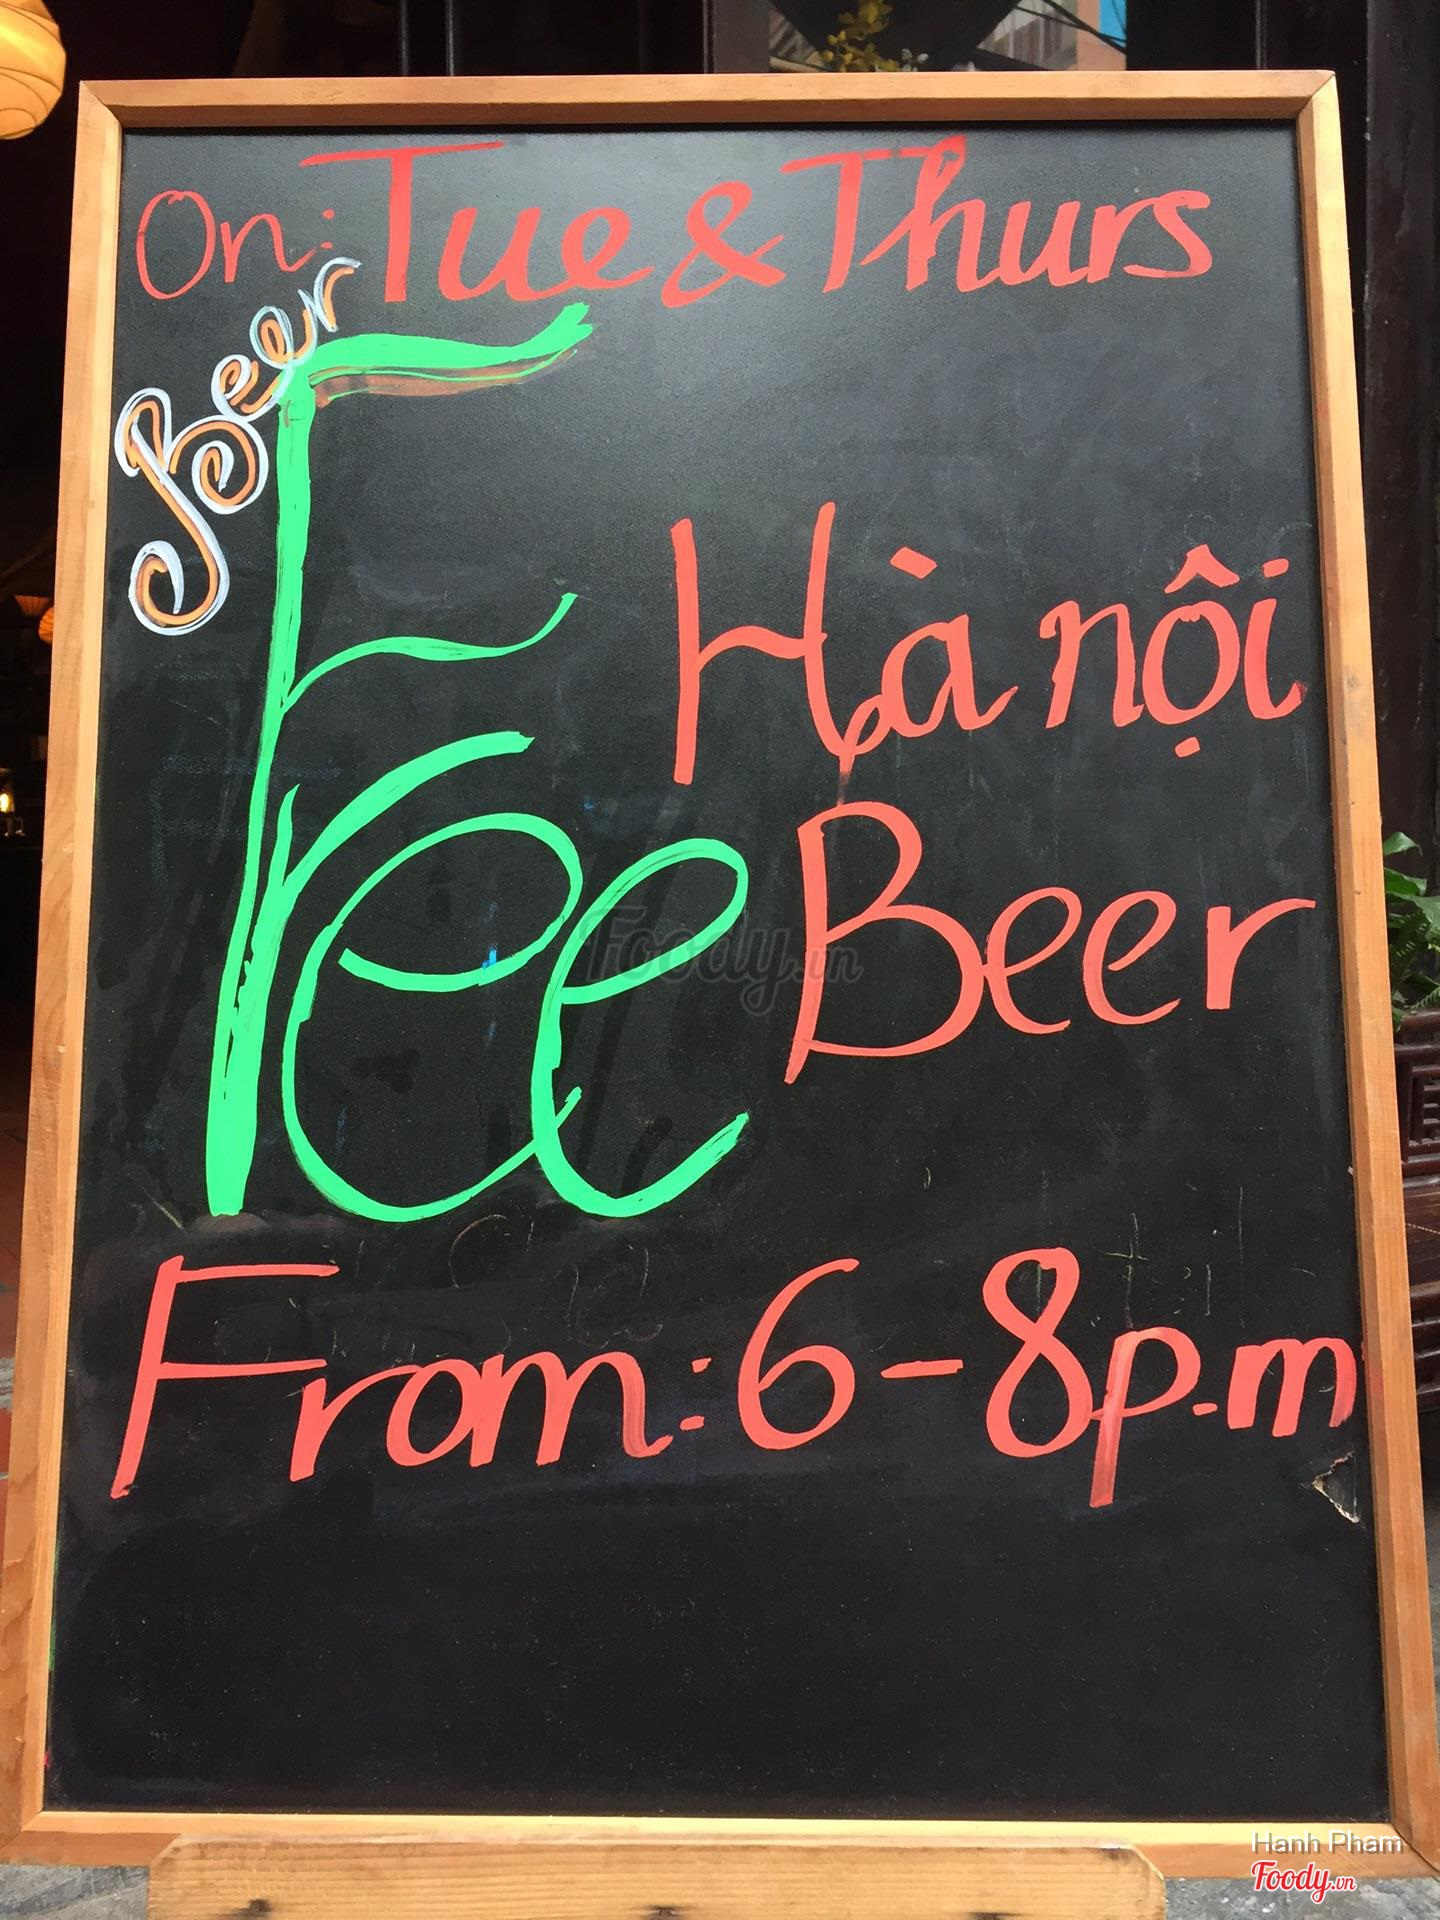 On: Tue & Thurs
Beer
Free
Hà nội
Beer
From: 6-8p.m
Foody.vn
Hanh Pham
Foody.vn